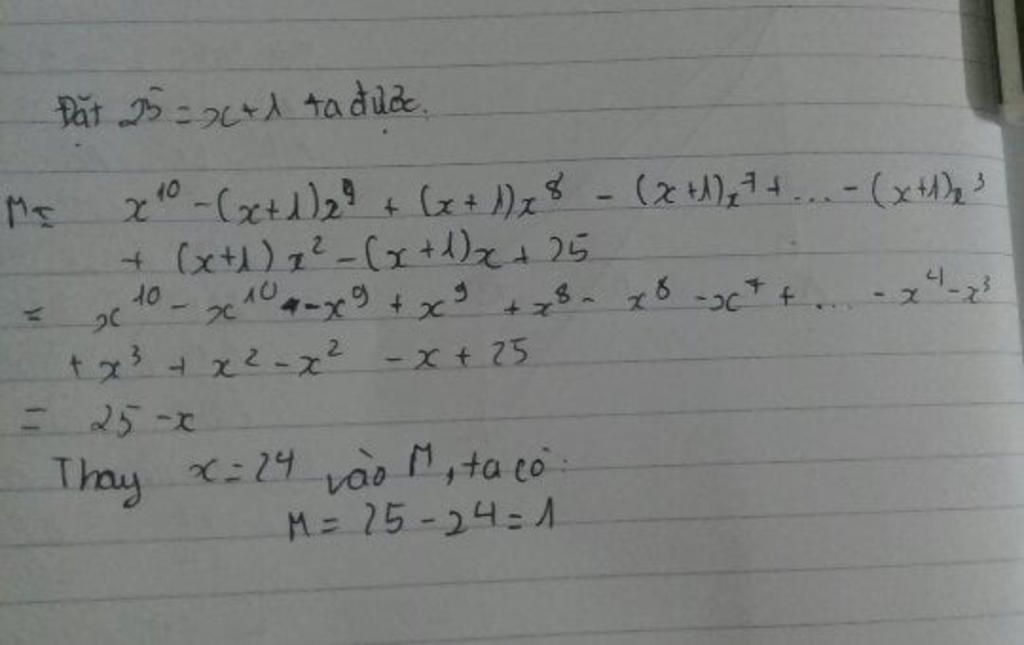 Đặt 25 = x+1 ta được.
M = x¹⁰ - (x+1)x⁹ + (x+1)x⁸ - (x+1)x⁷ + ... - (x+1)x³
+ (x+1)x² - (x+1)x + 25
= x¹⁰ - x¹⁰ - x⁹ + x⁹ + x⁸ - x⁸ - x⁷ + ... - x⁴ - x³
+ x³ + x² - x² - x + 25
= 25 - x
Thay x = 24 vào M, ta có:
M = 25 - 24 = 1